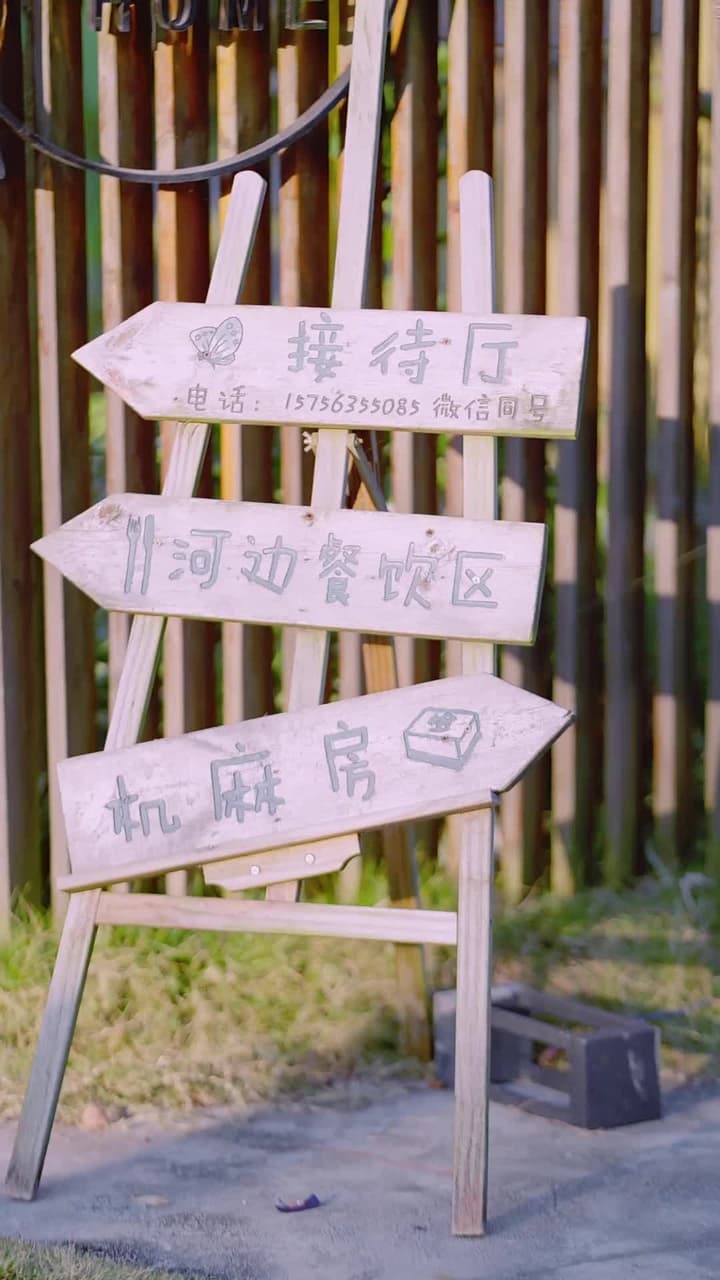 HOME
接待厅
电话: 15756355085 微信同号
河边餐饮区
机麻房